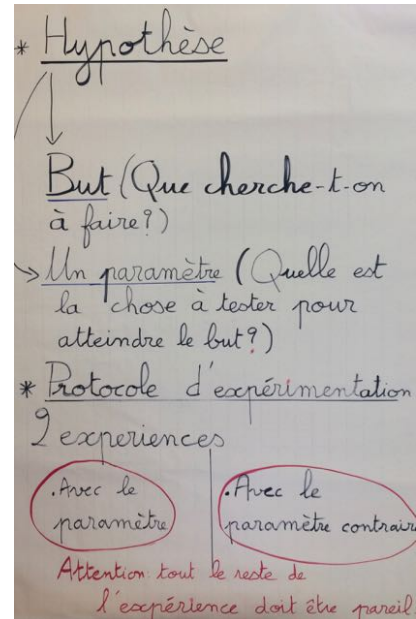 * Hypothèse
But (Que cherche-t-on
à faire?)
Un paramètre (Quelle est
la chose à tester pour
atteindre le but?)
* Protocole d'expérimentation
2 experiences
. Avec le
paramètre
. Avec le
paramètre contraire
Attention: tout le reste de
l'expérience doit être pareil